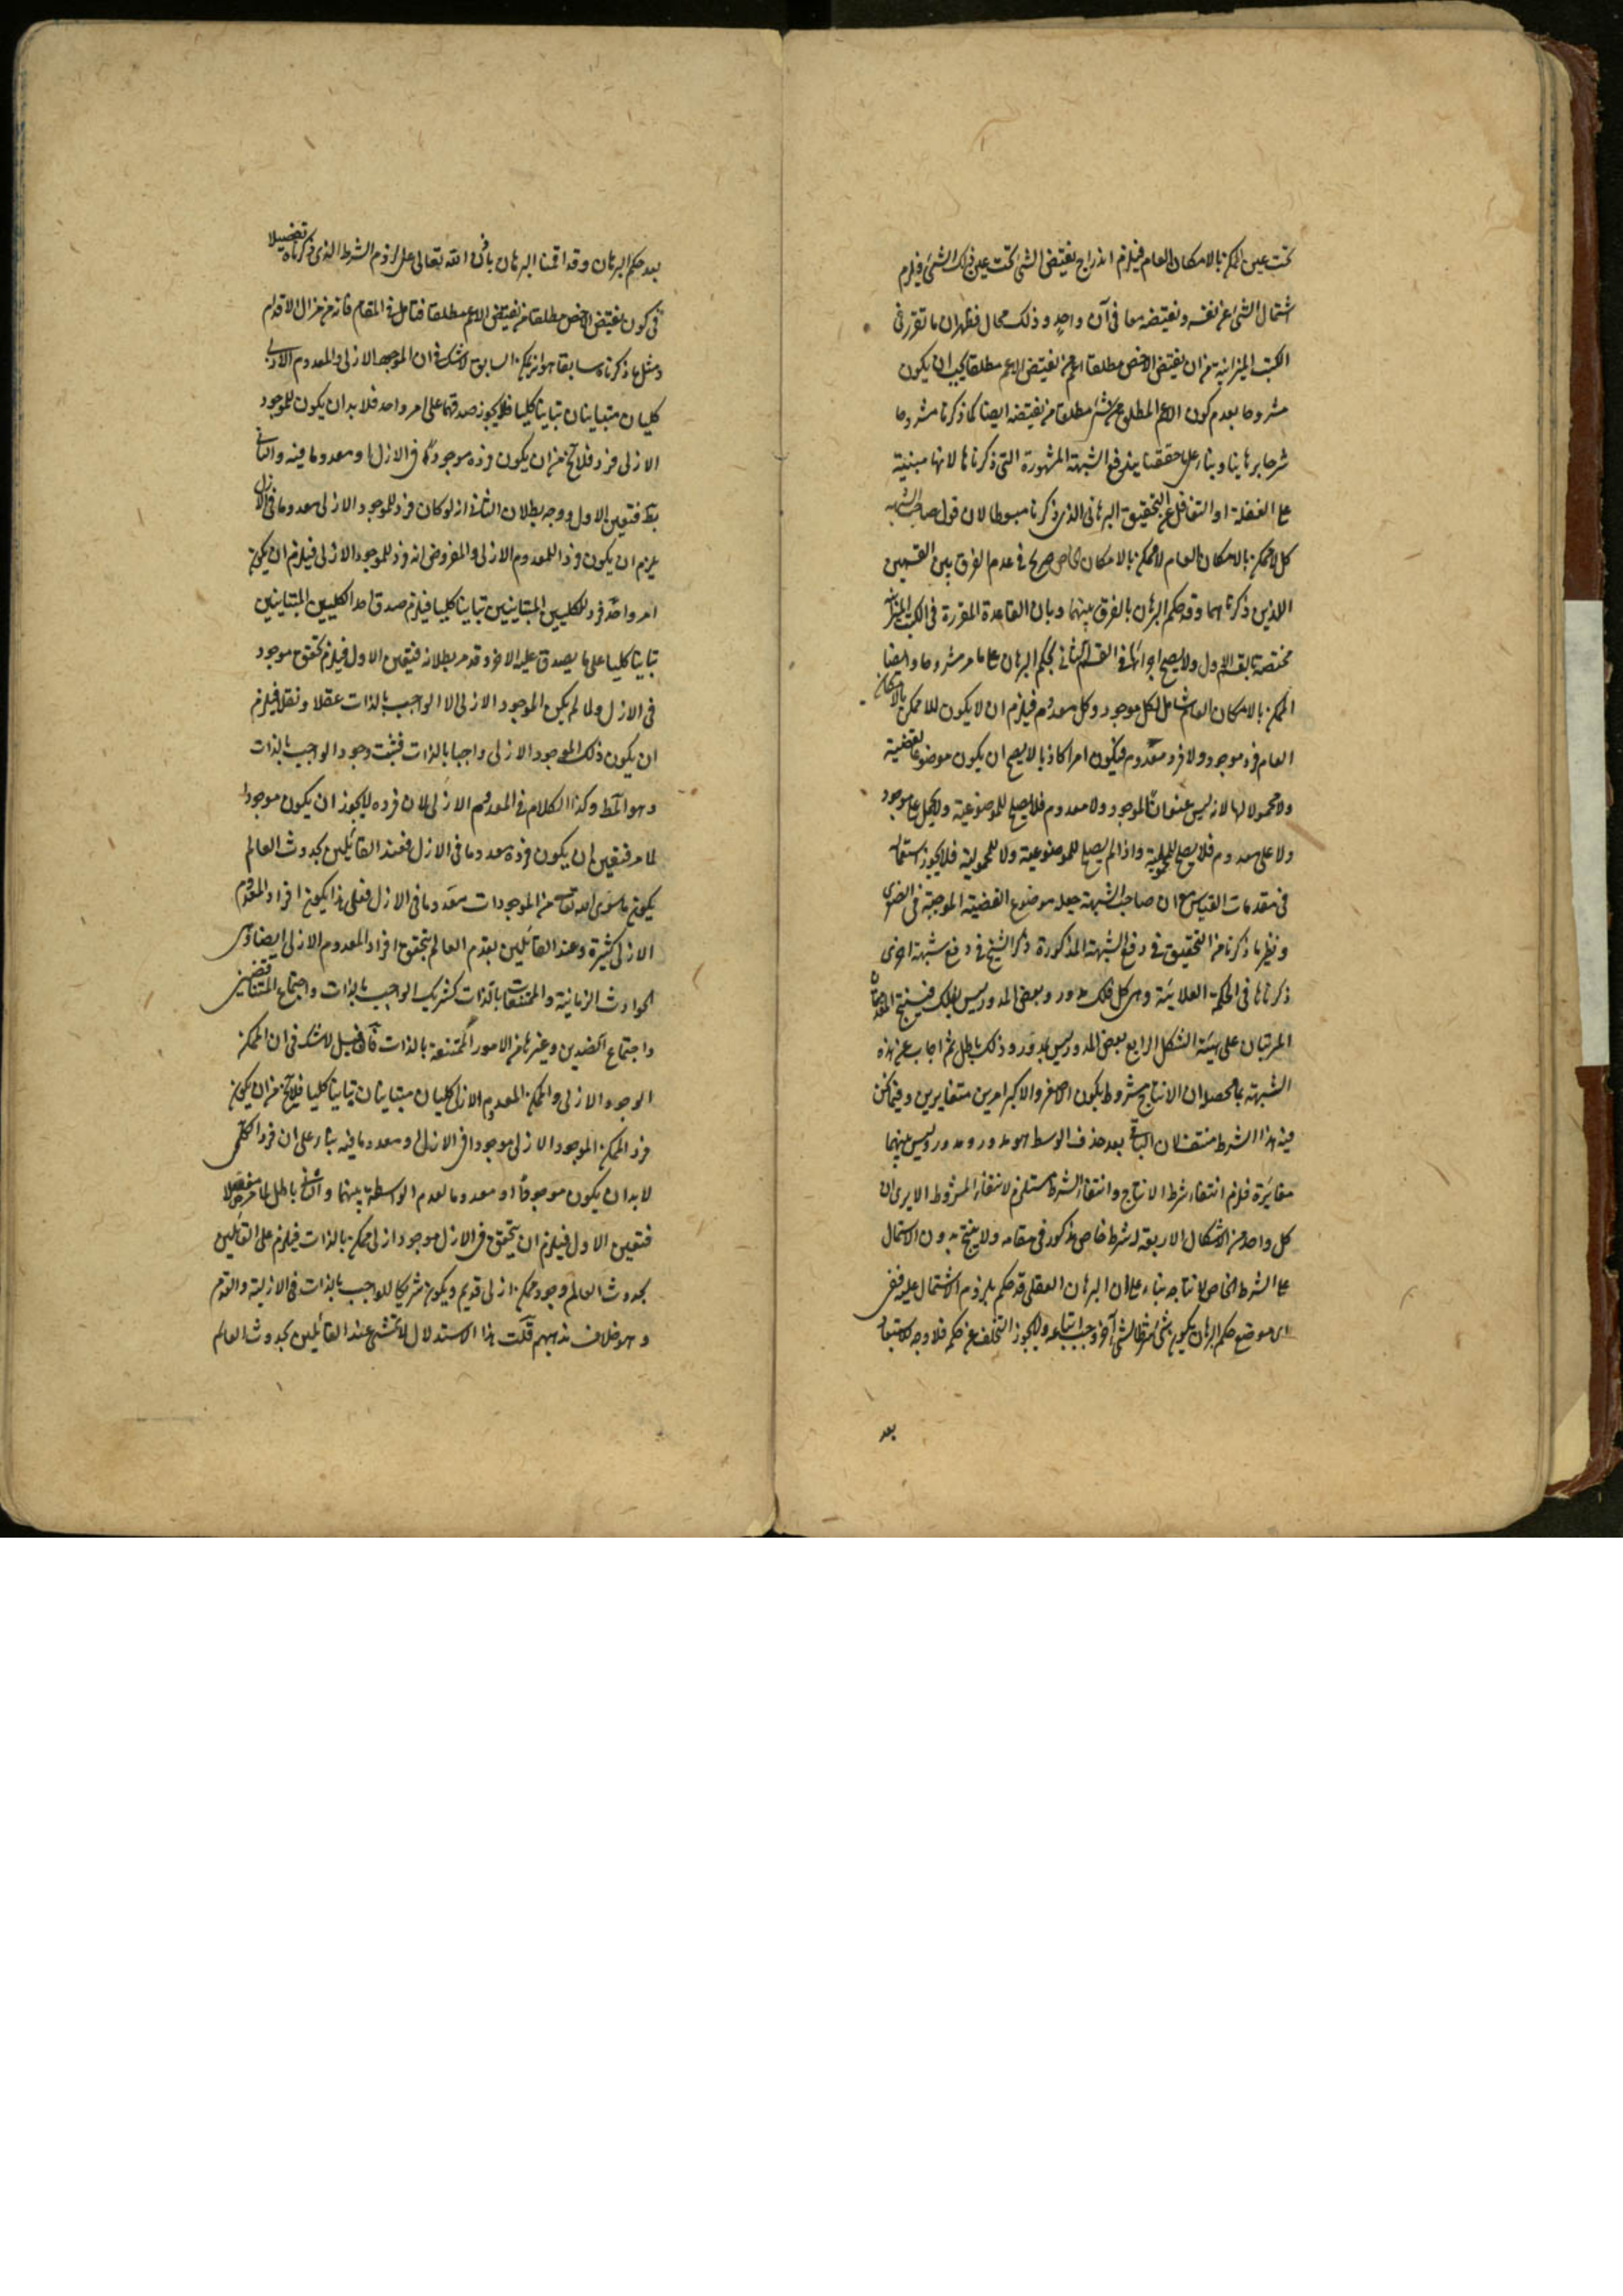 تحت عين الممكن بالامكان العام فيلزم اندراج نقيض الشئ تحت عين ذلك الشئ فيلزم
اشتمال الشئ عن نفسه ونقيضه معا فى آن واحد وذلك محال فظهر ان ما تقرر فى
الكتب الميزانية من ان نقيض الاخص مطلقا اعم من نقيض الاعم مطلقا يجب ان يكون
مشروطا بعدم كون الاعم المطلق من شئ مطلقا من نقيضه ايضا كما ذكرنا مشروطا
شرحا برهانيا وبناء على ما حققنا يندفع الشبهة المشهورة التى ذكرناها لانها مبنية
على الغفلة او التغافل عن التحقيق البرهانى الذى ذكرنا مبسوطا لان قول صاحب الشبهة
كل لا ممكن بالامكان العام لا ممكن بالامكان الخاص صريح فى عدم الفرق بين القسمين
اللذين ذكرناهما وقد حكم البرهان بالفرق بينهما وبان القاعدة المقررة فى الكتب الميزانية
مختصة بالقسم الاول ولا يصح اجراؤها فى القسم الثانى بحكم البرهان على ما مر مشروحا وايضا
الممكن بالامكان العام شامل لكل موجود وكل معدوم فيلزم ان لا يكون للاممكن بالامكان
العام فرد موجود ولا فرد معدوم فيكون امرا كاذبا لا يصح ان يكون موضوعا لقضية
ولا محمولا لها لانه ليس عنوانا لموجود ولا معدوم فلا يصلح للموضوعية ولا يحمل على موجود
ولا على معدوم فلا يصلح للمحمولية واذا لم يصلح للموضوعية ولا للمحمولية فلا يجوز استعماله
فى مقدمات القياس مع ان صاحب الشبهة جعله موضوع القضية الموجبة فى الصغرى
ونظير ما ذكرنا من التحقيق فى دفع الشبهة المذكورة ذكر الشيخ فى دفع شبهة اخرى
ذكرناها فى الحكمة العلائية وهى كل فلك مدور وبعض المدور ليس بفلك فينتج المقدمتان
المرتبتان على هيئة الشكل الرابع بعض المدور ليس بمدور وذلك باطل ثم اجاب عن هذه
الشبهة بما محصله ان الانتاج مشروط بكون الاصغر والاكبر امرين متغايرين وفيما نحن
فيه هذا الشرط منتف لان الباقى بعد حذف الوسط هو مدور ومدور وليس بينهما
مغايرة فلزم انتفاء شرط الانتاج وانتفاء الشرط مستلزم لانتفاء المشروط الا يرى ان
كل واحد من الاشكال الاربعة له شرط خاص مذكور فى مقامه ولا ينتج بدون الاشتمال
على الشرط الخاص لانتاجه بناء على ان البرهان العقلى قد حكم بلزوم الاشتمال عليه ففى
اى موضع حكم البرهان بكون شئ شرطا لشئ آخر وجب اتباعه ولا يجوز التخلف عن حكمه فلا وجه لاستبعاد
بعد
بعد حكم البرهان وقد اقمنا البرهان باذن الله تعالى على لزوم الشرط الذى ذكرناه تفصيلا
فى كون نقيض الاخص مطلقا من نقيض الاعم مطلقا فتامل فى المقام فانه من مزال الاقدام
ومثل ما ذكرناه سابقا هو انه يمكن السابق لا شك فى ان الموجود الازلى والمعدوم الازلى
كليان متباينان تباينا كليا فلا يجوز صدقهما على امر واحد فلا بد ان يكون للموجود
الازلى فرد فلا يخ من ان يكون فرده موجودا فى الازل او معدوما فيه والثانى
بط فتعين الاول ووجه بطلان الثانى انه لو كان فرد للموجود الازلى معدوما فى الازل
يلزم ان يكون فردا للمعدوم الازلى والمفروض انه فرد للموجود الازلى فيلزم ان يكون
امر واحد فرد للكليين المتباينين تباينا كليا فيلزم صدق احد الكليين المتباينين
تباينا كليا على ما يصدق عليه الاخر وقد مر بطلانه فتعين الاول فيلزم تحقق موجود
فى الازل ولما لم يكن الموجود الازلى الا الواجب بالذات عقلا ونقلا فيلزم
ان يكون ذلك الموجود الازلى واجبا بالذات فثبت وجود الواجب بالذات
وهو المط وكذا الكلام فى المعدوم الازلى لان فرده لا يجوز ان يكون موجودا
لما مر فتعين ان يكون فرده معدوما فى الازل فعند القائلين بحدوث العالم
يكون ما سوى الله تعالى من الموجودات معدوما فى الازل فعلى هذا يكون افراد المعدوم
الازلى كثيرة وعند القائلين بقدم العالم يتحقق افراد المعدوم الازلى ايضا وهى
الحوادث الزمانية والممتنعات بالذات كشريك الواجب بالذات واجتماع المتناقضين
واجتماع الضدين وغيرها من الامور الممتنعة بالذات فان قيل لا شك فى ان الممكن
الموجود الازلى والممكن المعدوم الازلى كليان متباينان تباينا كليا فلا يخ من ان يكون
فرد الممكن الموجود الازلى موجودا فى الازل او معدوما فيه بناء على ان فرد الكلى
لا بد ان يكون موجودا او معدوما لعدم الواسطة بينهما والثانى باطل لما مر مفصلا
فتعين الاول فيلزم ان يتحقق فى الازل موجود ازلى ممكن بالذات فيلزم على القائلين
بحدوث العالم وجود ممكن ازلى قديم ويكون شريكا للواجب بالذات فى الازلية والقدم
وهو خلاف مذهبهم قلت هذا الاستدلال لا يتمشى عند القائلين بحدوث العالم